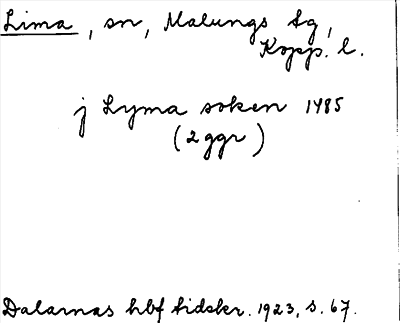 Lima, sn, Malungs tg,
Kopp. l.
j Lyma soken 1485
(2 ggr)
Dalarnas hbf tidskr. 1923, s. 67.